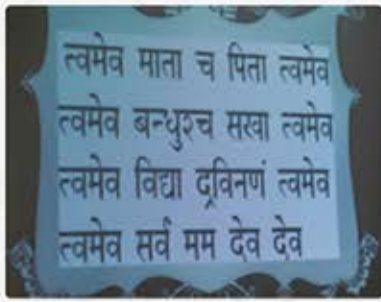 त्वमेव माता च पिता त्वमेव
त्वमेव बन्धुश्च सखा त्वमेव
त्वमेव विद्या द्रविनणं त्वमेव
त्वमेव सर्वं मम देव देव